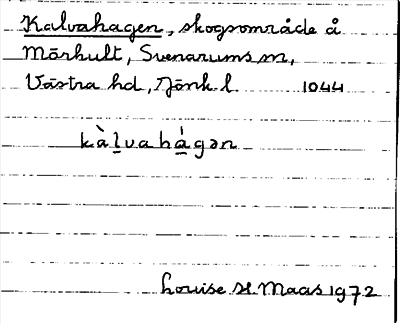 Kalvahagen, skogsområde å
Mörhult, Svenarums sn,
Västra hd, Jönk. l. 1044
kàl̠va há̠gən
Louise H. Maas 1972